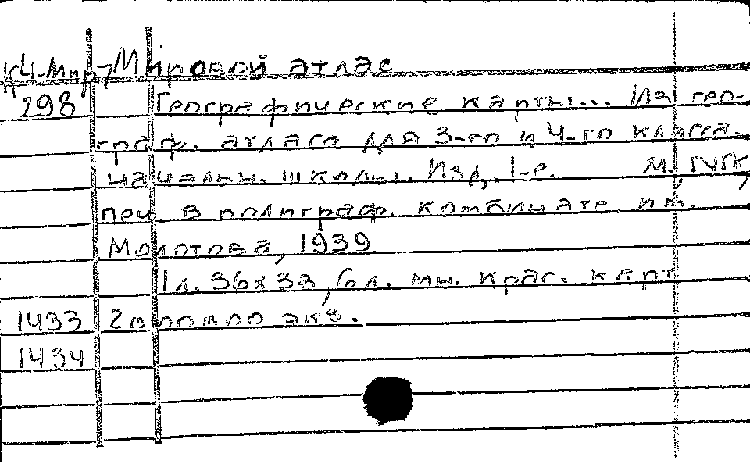 К4-Мир Мировой атлас
298 Географические карты... Из гео-
граф. атласа для 3-го и 4-го класса
начальн. школы. Изд. 1-е. М., ГУГК,
печ. в полиграф. комбинате им.
Молотова, 1939
1 л. 36х38, 6 л. мн. крас. карт
1433 2 экз.
1434